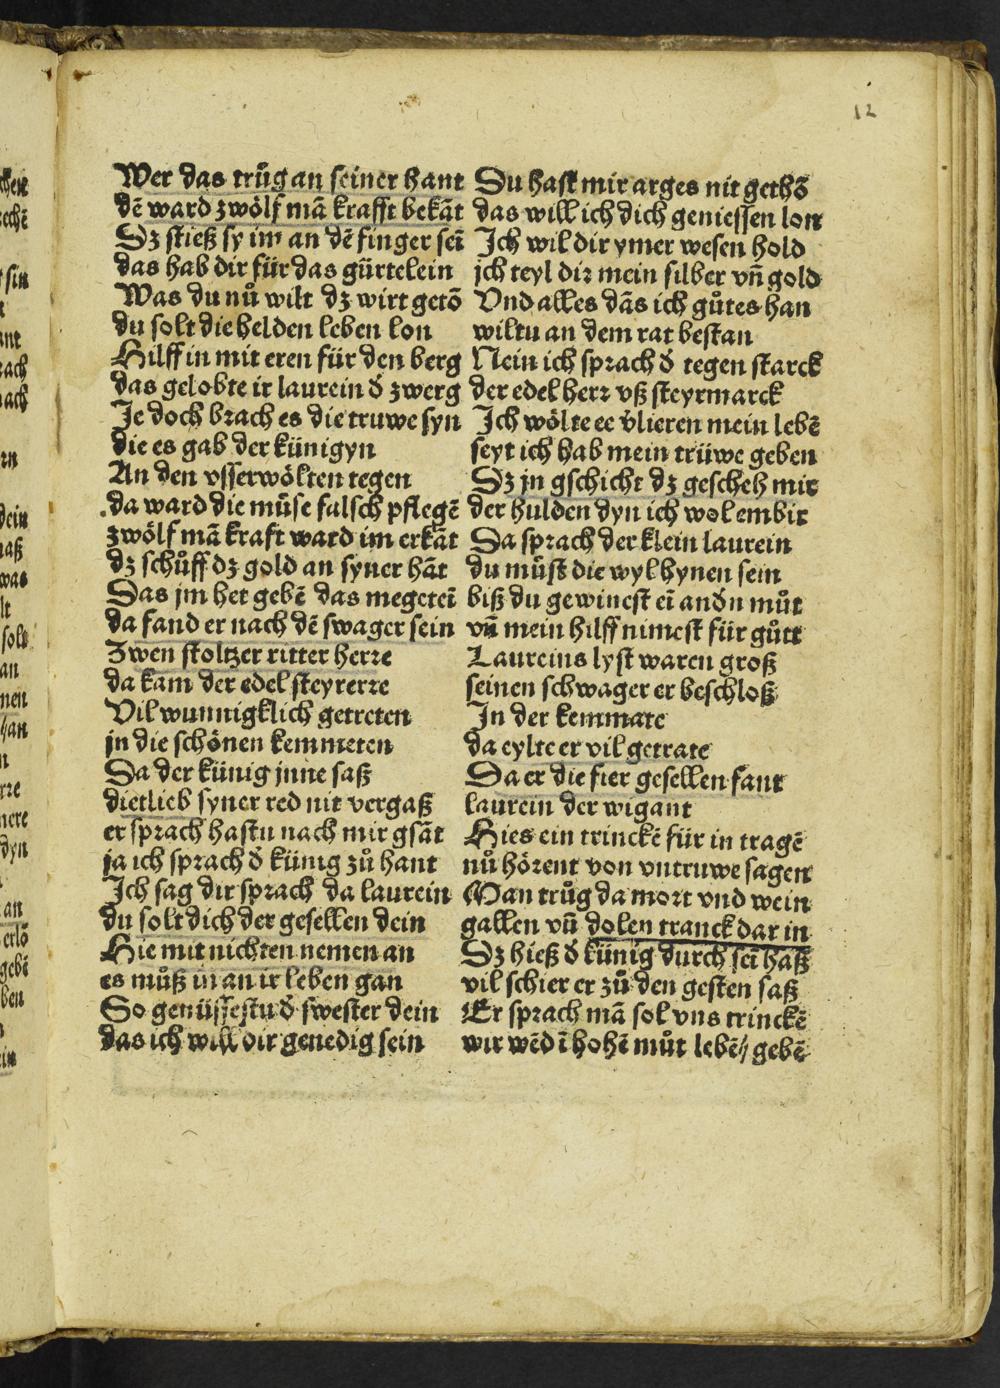 12
Wer das trůg an seiner hant
dē ward zwölf mā krafft bekāt
Dz stieß sy im an dē finger seī
das hab dir für das gürtelein
Was du nů wilt dz wirt getō
du solt die helden leben lon
Hilff in mit eren für den berg
das gelobte ir laurein d̕ zwerg
Je doch brach es die truwe syn
die es gab der künigyn
An den vsserwölten tegen
da ward die müse falsch pflegē
zwölf mā kraft ward im erkāt
dz schůff dz gold an syner hāt
Das jm het gebē das megeteī
da fand er nach dē swager sein
Zwen stoltzer ritter herre
da kam der edel steyrerre
Vil wunnigklich getreten
jn die schönen kemmeten
Da der künig jnne saß
dietlieb syner red nit vergaß
er sprach hastu nach mir gsāt
ja ich sprach d̕ künig zů hant
Ich sag dir sprach da laurein
du solt dich der gesellen dein
Hie mit nichten nemen an
es můß in an ir leben gan
So genüssestu d̕ swester dein
das ich will dir genedig sein
Du hast mir arges nit gethō
das will ich dich geniessen lon
Ich wil dir ymer wesen hold
ich teyl dir mein silber vn̄ gold
Vnd alles dās ich gůtes han
wiltu an dem rat bestan
Nein ich sprach d̕ tegen starck
der edel herr vß steyrmarck
Ich wölte ee v̕lieren mein lebē
seyt ich hab mein trüwe geben
Dz jn gschicht dz gescheh mir
der hulden dyn ich wol embir
Da sprach der klein laurein
du můst die wyl hynen sein
biß du gewinest eī and̕n můt
vn̄ mein hilff nimest für gůtt
Laureins lyst waren groß
seinen schwager er beschloß
In der kemmate
da eylte er vil getrate
Da er die fier gesellen fant
laurein der wigant
Hies ein trinckē für in tragē
nů hörent von vntruwe sagen
Man trůg da mort vnd wein
gallen vn̄ dolen tranck dar in
Dz hieß d̕ künig durch seī haß
vil schier er zů den gesten saß
Er sprach mā sol vns trinckē
wir wēd ī hohē můt lebē// gebē